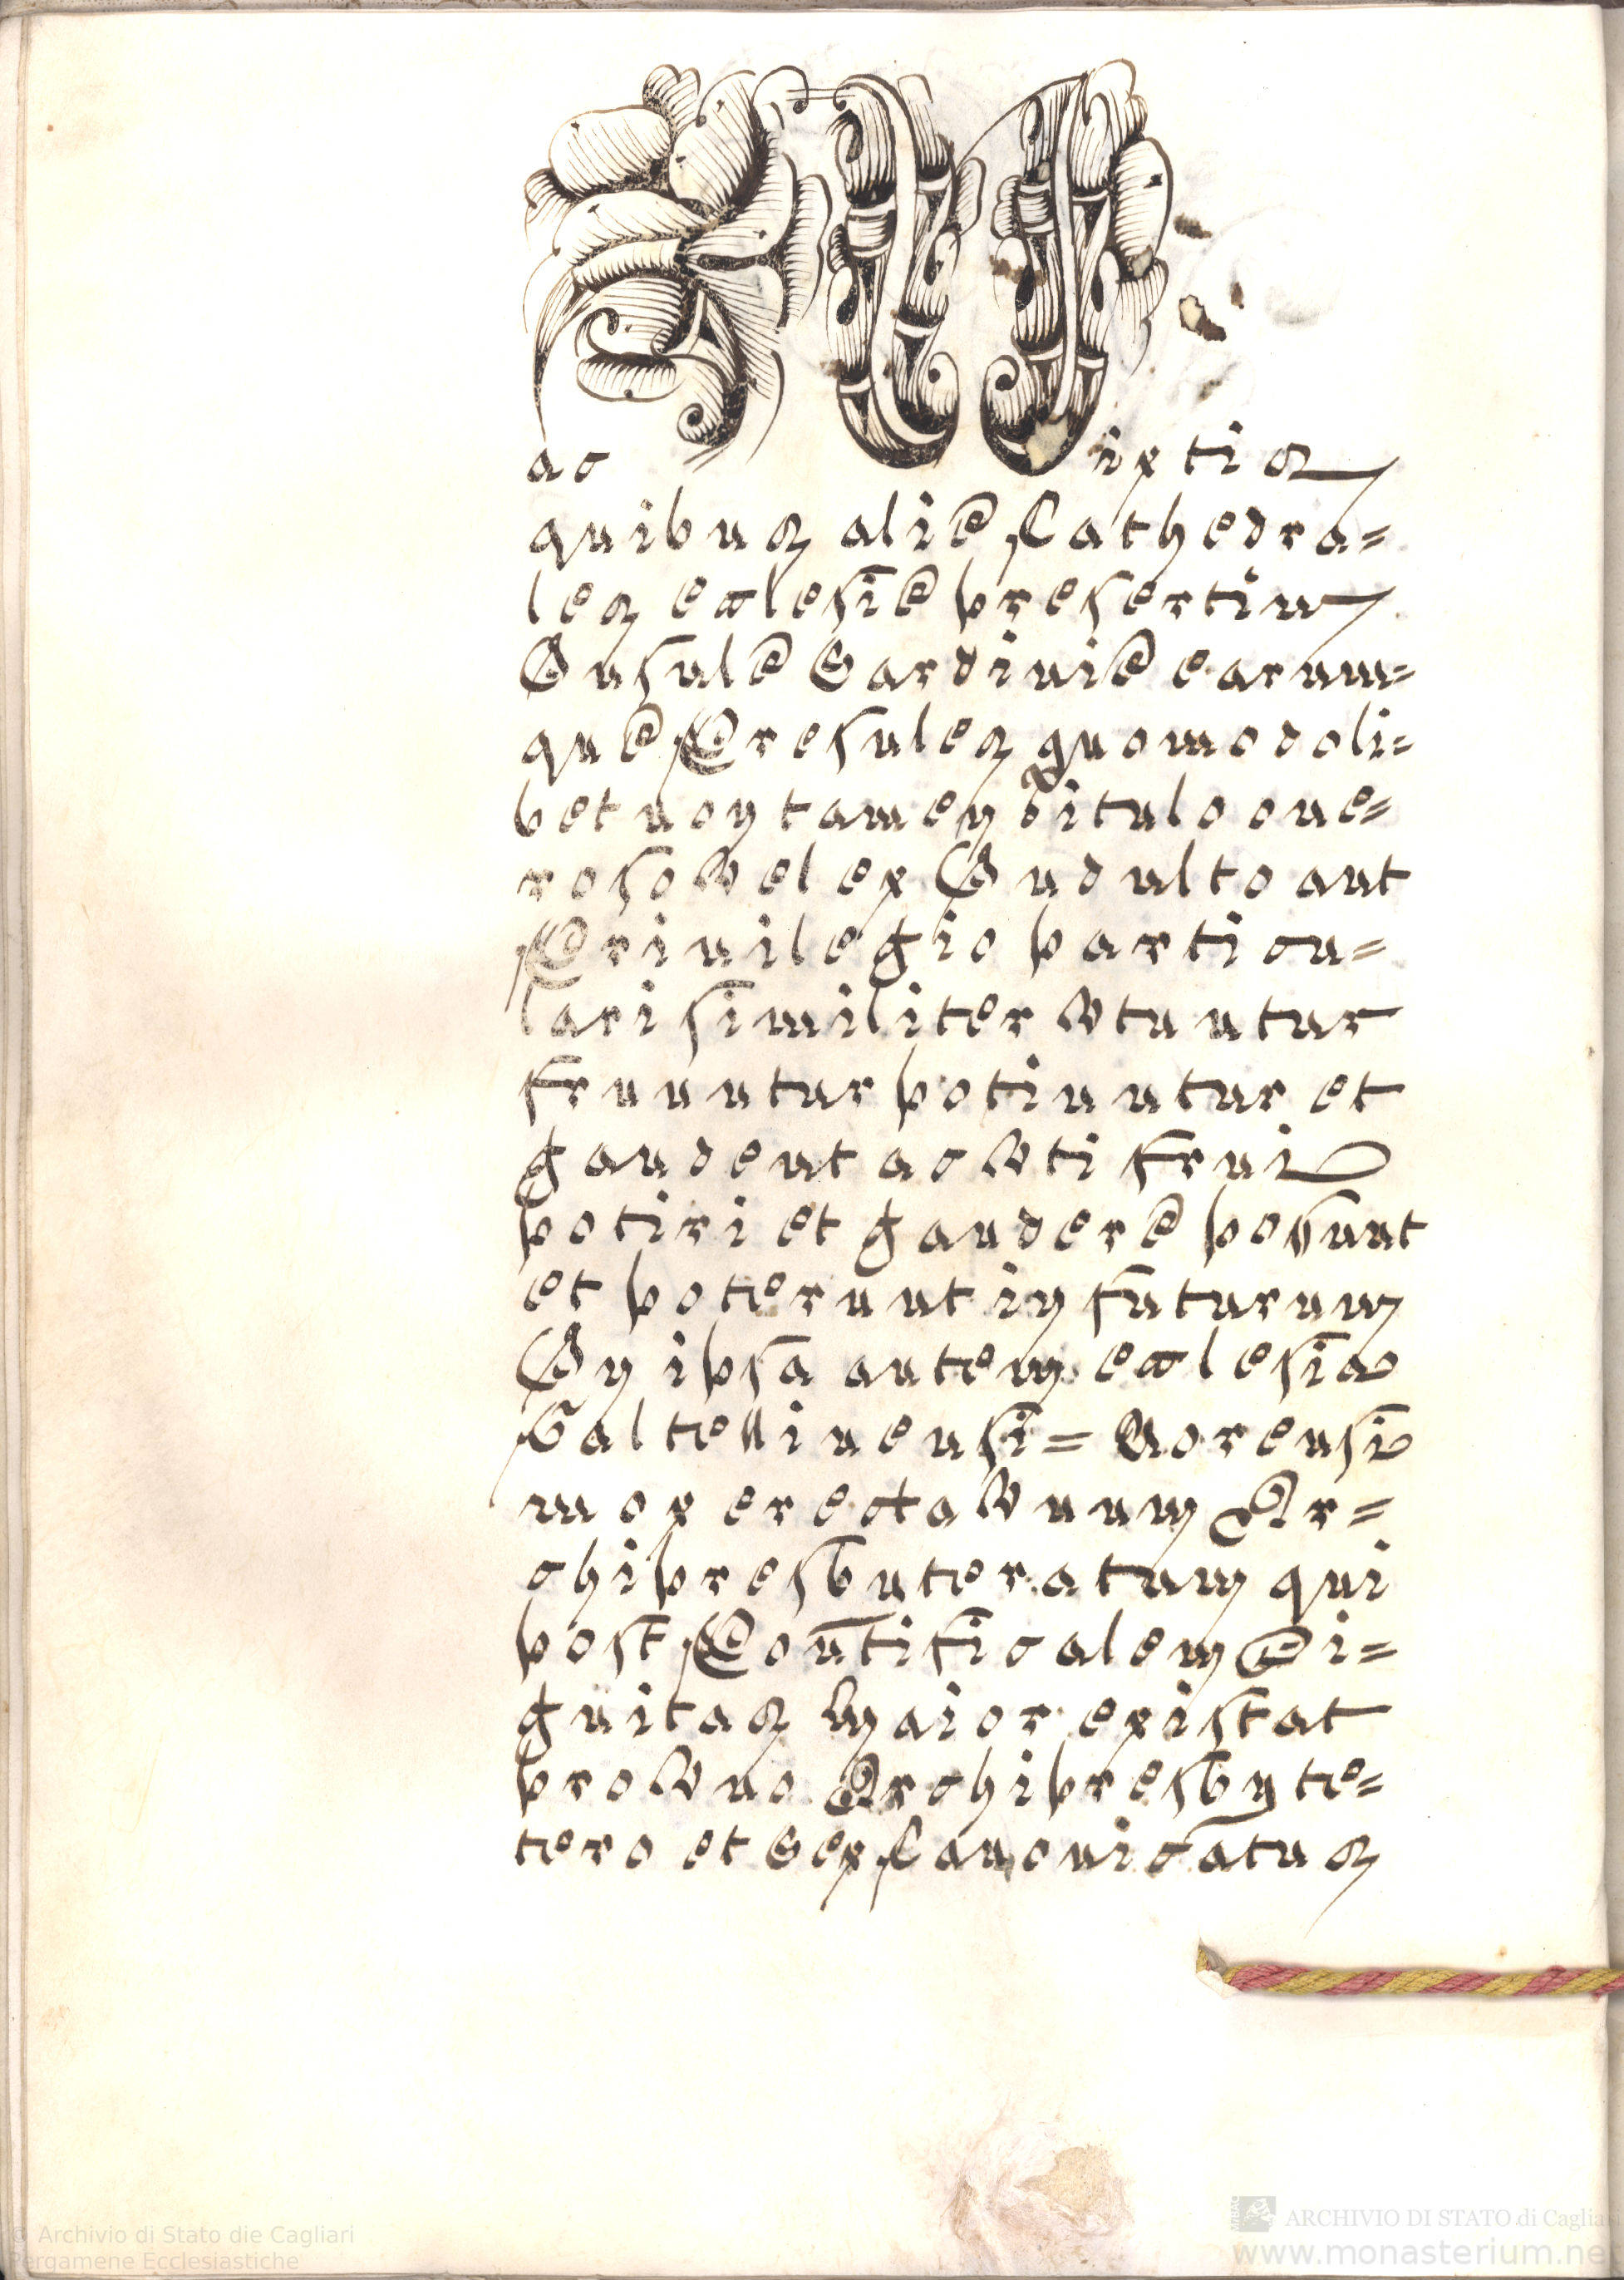 ac Nuptis
quibus alie Cathedra=
les eclesie presertim
Insule Sardinie earum=
que Presules quomodoli=
bet non tamen titulo one=
roso vel ex Indulto aut
Privilegio particu=
lari similiter vtuntur
fruuntur potiuntur et
gaudent ac vti frui
potiri et gaudere possunt
et poterunt in futurum
In ipsa autem eclesia
Galtellinensi= Norensi
mox erecta vnum Ar=
chipresbuteratum qui
post Pontificalem Di=
gnitas maior existat
pro vno Archipresbyte=
tero et sex Canonicatus
© Archivio di Stato die Cagliari
Pergamene Ecclesiastiche
ARCHIVIO DI STATO di Cagliari
www.monasterium.net